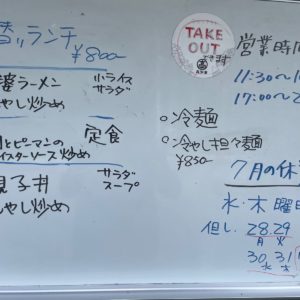 替ッランチ
¥800
婆ラーメン 小ライス
サラダ
やし炒め
とピーマンの 定食
イスターソース炒め
親子丼 サラダ
スープ
やし炒め
TAKE
OUT
できます
営業時間
11:30〜1
17:00〜2
○冷麺
○冷やし担々麺
¥850
7月の休
水・木曜日
但し、28.29
月 火
30.31
水 木